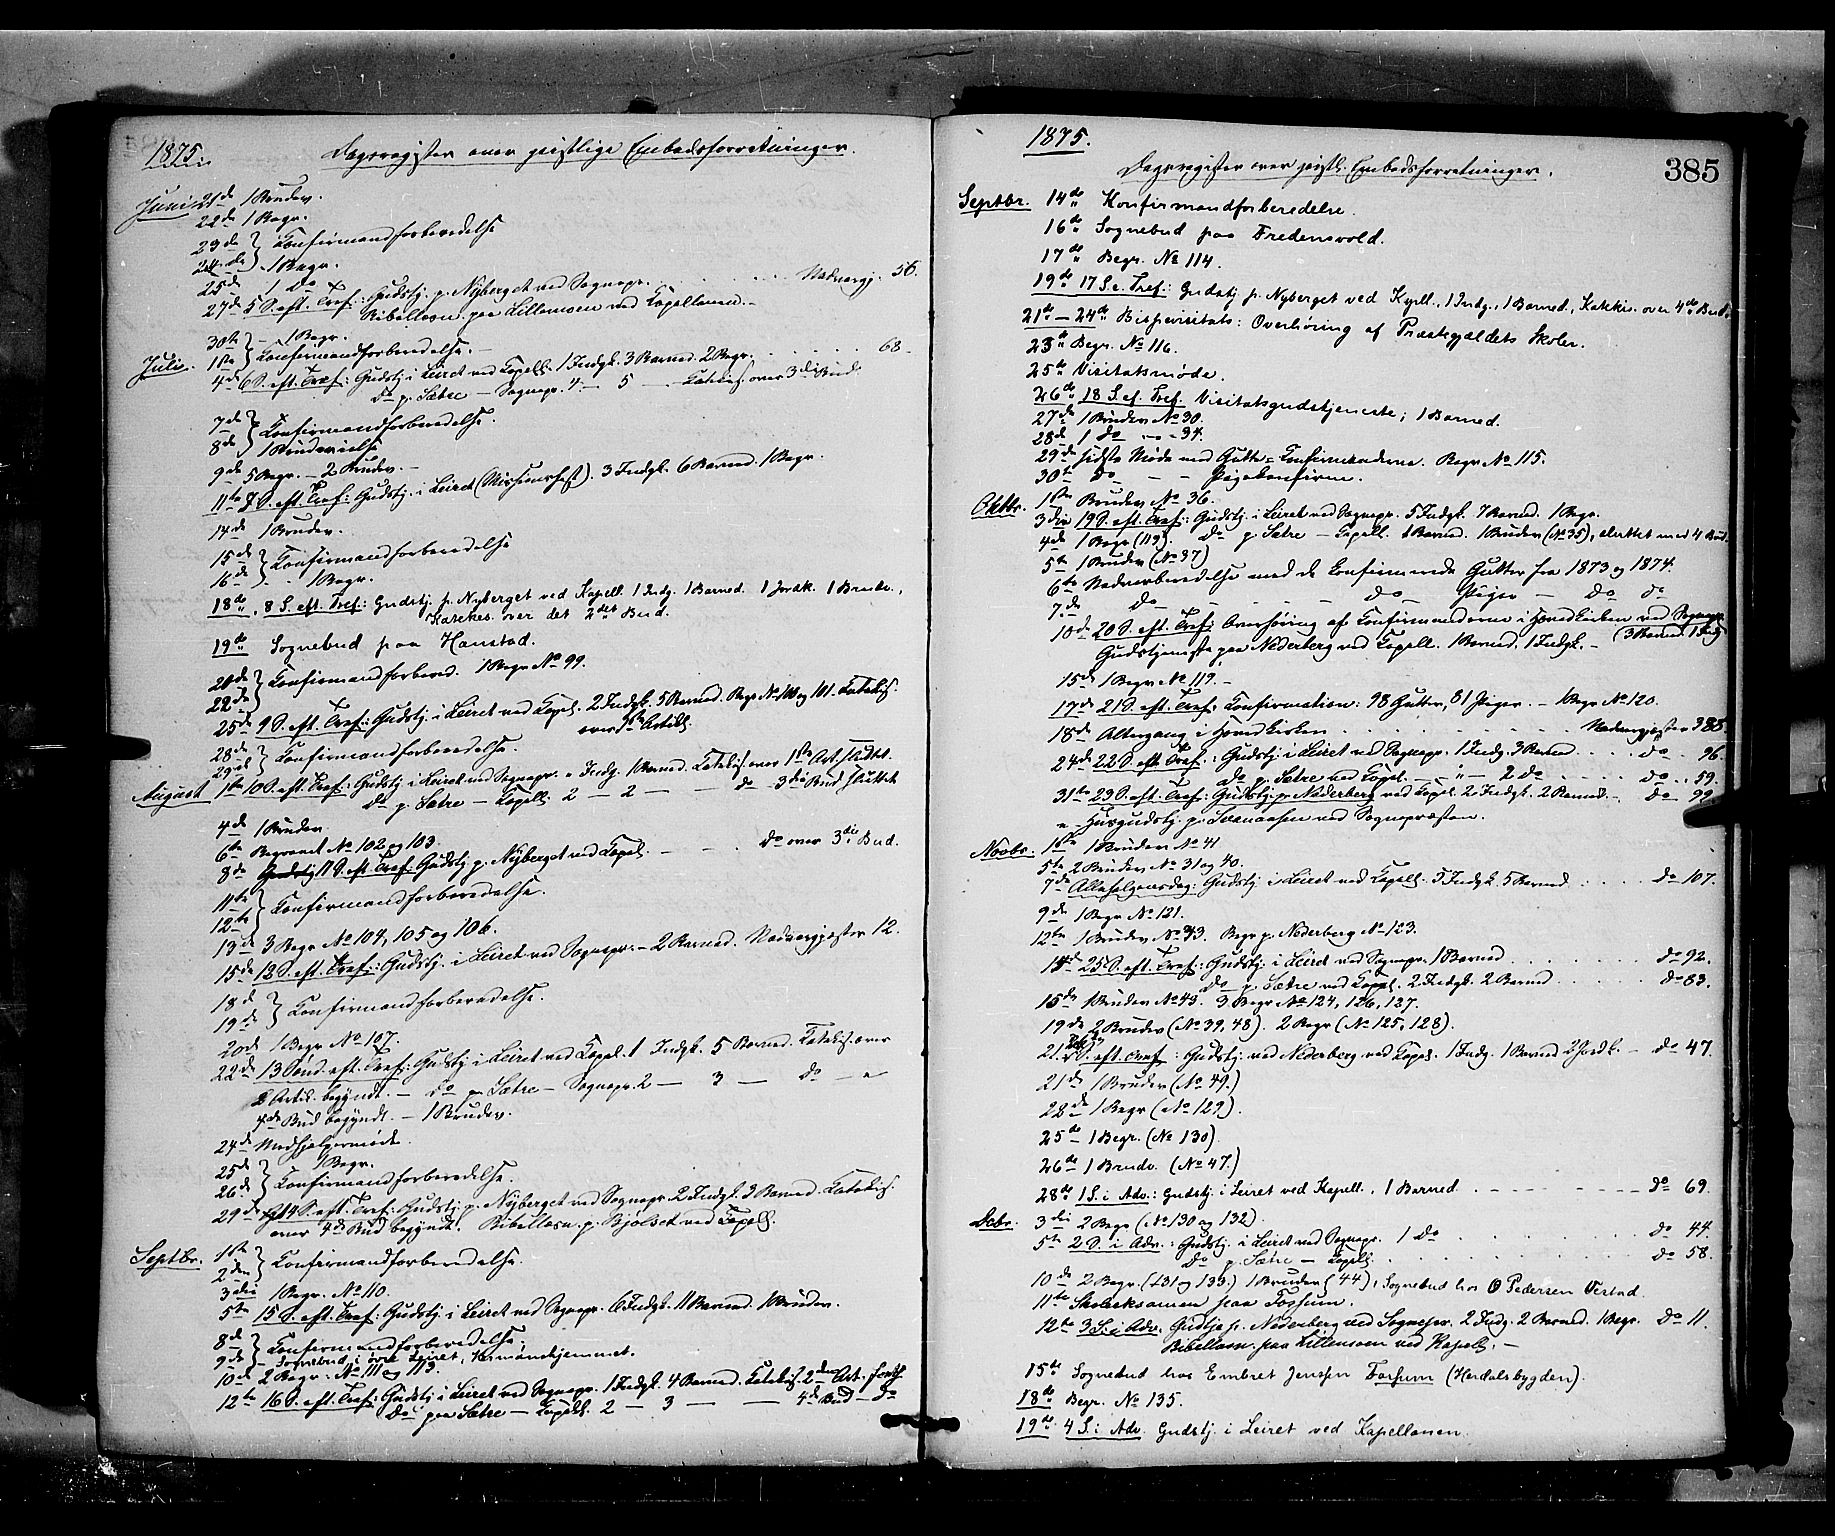 1875.
Dagsregister over geistlige Embedsforretninger.
Juni 21de 1 Brudev.
22de 1 Begr.
23de } Konfirmandforberedelse
24de } 1 Begr.
25de 1 Do
27de 5 S. eft. Tref: Gudstj. p. Nyberget ved Sognepr. . . . . Nadvergj. 56.
Bibellæsn. paa Lillemoen ved Kapellanen.
30te } 1 Begr.
Juli. 1ste } Konfirmandforberedelse.
4de 6 S. eft. Tref: Gudstj. i Leiret ved Kapell. 1 Indgk. 3 Barned. 2 Begr. . . . . . 68
Do p. Sætre — Sognepr. 4 — 5 — Katekis. over 3die Bud.
7de } Konfirmandforberedelse.
8de } 1 Brudevielse
9de 5 Begr. — 2 Brudev. —
11te 7 S. eft. Tref: Gudstj. i Leiret (Missionsfest). 3 Indgk. 6 Barned. 1 Begr.
14de 1 Brudev.
15de } Konfirmandforberedelse
16de } 1 Begr.
18de, 8 S. eft. Tref: Gudstj. p. Nyberget ved Kapell. 1 Indg. 1 Barned. 1 Jordk. 1 Brudev.,
Katekes. over det 2det Bud.
19de Sognebud paa Hanstad.
20de } Konfirmandforbered. 1 Begr. No 99.
22de }
25de 9 S. eft. Tref: Gudstj. i Leiret ved Kapel. 2 Indgk. 5 Barned. Begr. No 100 og 101. Katekis.
over 1ste Artikl.
28de } Konfirmandforberedelse.
29de }
August 1ste 10 S. eft. Tref: Gudstj. i Leiret ved Sognepr. " Indg. 1 Barned. Katekis. over 1ste Art. sluttet.
Do p. Sætre — Kapell. 2 — 2 — — do — 3die Bud sluttet
4de 1 Brudev.
6te Begravet No 102 og 103.
8de 11 S. eft. Tref: Gudstj. p. Nyberget ved Kapel. — — . Do over 3die Bud.
11te } Konfirmandforberedelse.
12te }
13de 3 Begr. No 104, 105 og 106.
15de 12 S. eft. Tref: Gudstj. i Leiret ved Sognepr. — 2 Barned. Nadvergjæster 12.
18de } Konfirmandforberedelse.
19de }
20de 1 Begr. No 107.
22de 13 Sønd. eft. Tref: Gudstj. i Leiret ved Kapel. 1 Indgk. 5 Barned. Katekis. over
2 Artik. begyndt. — Do p. Sætre — Sognepr. 2 — 3 — Do — "
4de Bud begyndt. — 1 Brudev.
24de Medhjælpermøde.
25de } 1 Begr.
26de } Konfirmandforberedelse.
29de 14 S. eft. Tref: Gudstj. p. Nyberget ved Sognepr. 2 Indgk. 3 Barned. Katekis.
over 4de Bud begyndt. Bibellæsn. p. Bjølset ved Kapell.
Septbr. 1ste } Konfirmandforberedelse.
2den }
3die 1 Begr. No 110.
5te 15 S. eft. Tref: Gudstj. i Leiret ved Sognepr. 6 Indgk. 11 Barned. 1 Brudev.
8de } Konfirmandforberedelse.
9de } — Sognebud i øvre Leiret,
10de 2 Begr. No 111 og 113.
12te 16 S. eft. Tref: Gudstj. i Leiret ved Sognepr. 1 Indgk. 4 Barned. Katekis. 2den Art. forts.
Do paa Sætre — Kapell. 2 — 3 — — 4de Bud — Do
1875.
Dagsregister over geistl. Embedsforretninger.
385
Septbr. 14de Konfirmandforberedelse.
16de Sognebud paa Fredensvold.
17de Begr. No 114.
19de 17 S. e. Tref: Gudstj. p. Nyberget ved Kapell., 1 Indg., 1 Barned., Katekis. over 4de Bud.
21de — 24de Bispevisitats: Overhøring af Præstegjældets Skoler.
23de Begr. No 116.
25de Visitatsmøde.
26de 18 S. ef. Tref. Visitatsgudstjeneste; 1 Barned.
27de 1 Brudev. No 30.
28de 1 do — 34.
29de sidste Møde med Gutte-Konfirmanderne. Begr. No 115.
30te Do — — Pigekonfirm.
Oktbr. 1ste Brudev. No 36.
3die 19 S. eft. Tref: Gudstj. i Leiret ved Sognepr. 5 Indgk. 7 Barned. 1 Begr.
Do p. Sætre — Kapell. 1 Barned. 1 Brudev. (No 35), sluttet med 4 Bud.
4de 1 Begr. (113).
5te 1 Brudev. (No 37)
6te Nadverberedelse med de konfirmerede Gutter fra 1873 og 1874.
7de Do — — — do — Piger — do do
10de 20 S. eft. Tref: Overhøring af Konfirmanderne i Hovedkirken ved Sognepr.
(3 Barned. 1 Indg.
Gudstjeneste paa Nøderberg ved Kapell. 1 Barned. 1 Indgk. —
15de 1 Begr. No 119. —
17de 21 S. eft. Tref: Konfirmation. 98 Gutter, 81 Piger. — 1 Begr. No 120.
18de Altergang i Hovedkirken . . . . . Nadvergjæster 385.
24de 22 S. eft. Tref.: Gudstj. i Leiret ved Sognepr. 1 Indg. 3 Barned . . . Do 96.
Do p. Sætre ved Kapel. — " — 2 do . . . . do . . 59.
31te 23 S. eft. Tref: Gudstj. p. Nøderberg ved Kapel. 2 Indgk. 2 Barned. . Do 99
" Husgudstj. p. Svenaasen ved Sognepræsten.
Novbr. 1ste 1 Brudev. No 41
5te 2 Brudev. No 31 og 40.
7de Allehelgensdag: Gudstj. i Leiret ved Kapell. 5 Indgk. 5 Barned . . . . Do 107.
9de 1 Begr. No 121.
12te 1 Brudev. No 43. Begr. p. Nøderberg No 123.
14de 25 S. eft. Tref: Gudstj. i Leiret ved Sognepr. 1 Barned . . . . . . . Do 92.
Do p. Sætre ved Kapel. 2 Indgk. 2 Barned . . . . . Do 83.
15de 1 Brudev. No 45. 3 Begr. No 124, 126, 127.
19de 2 Brudev. (No 39, 48). 2 Begr. (No 125, 128).
21. S. eft. Tref: Gudstj. ved Nøderberg ved Kapel. 1 Indg. 1 Barned 2 Jordk. — Do 47.
21de 1 Brudev. (No 49.)
22de 1 Begr. (No 129).
25de 1 Begr. (No 130).
26de 1 Brudv. (No 47.)
28de 1 S. i Adv.: Gudstj. i Leiret ved Kapell., 1 Barned — — — — — Do 69.
Decbr. 3die 2 Begr. (No 130 og 132).
5te 2 S. i Adv.: Gudstj. i Leiret ved Sognepr. 1 Do . . . . . . Do 44.
Do p. Sætre — Kapell. . . . . . . . . . Do 58.
10de 2 Begr. (131 og 133.) 1 Brudev. (44), Sognebud hos O Pedersen
11te Skoleeksamen paa Fossum.
12te 3 S. i Adv. Gudtj. p. Nøderberg ved Sognepr. 2 Indg. 2 Barned. 1 Begr. Do 11.
Bibellæsn. paa Lillemoen ved Kapell. —
15de Sognebud hos Embret Jensen Fossum (Herdalsbygden).
18de Begr. No 135.
19de 4 S. i Adv. Gudstj. i Leiret ved Kapellanen.